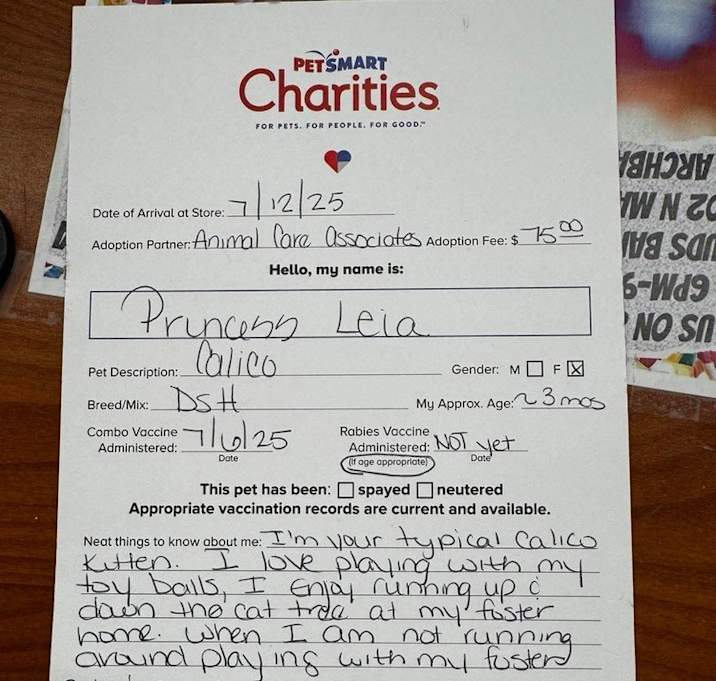 PETSMART
Charities
FOR PETS. FOR PEOPLE. FOR GOOD.™
Date of Arrival at Store: 7/12/25
Adoption Partner: Animal Care Associates Adoption Fee: $ 75.00
Hello, my name is:
Princess Leia
Pet Description: Calico Gender: M ☐ F ☒
Breed/Mix: DSH My Approx. Age: ~3 mos
Combo Vaccine Administered: 7/6/25 Date
Rabies Vaccine Administered: NOT yet Date
(if age appropriate)
This pet has been: ☐ spayed ☐ neutered
Appropriate vaccination records are current and available.
Neat things to know about me: I'm your typical Calico
Kitten. I love playing with my
toy balls, I enjoy running up &
down the cat tree at my foster
home. When I am not running
around playing with my fosters
ARCHBA
02 N MA
UDS BA
6PM-9
US ON